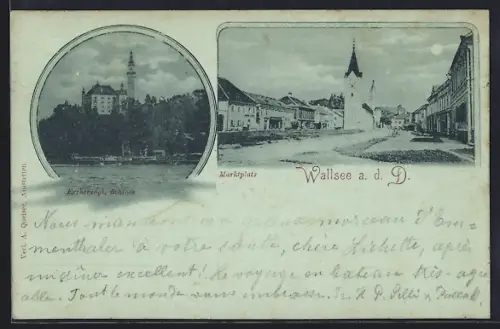 Erzherzogl. Schloss
Marktplatz
Wallsee a. d. D.
Verl. A. Queiser, Amstetten.
Nous un morceau d'Em-
menthaler à votre santé, chère Lichette, après
un dîner excellent! Le voyage en bateau très agré-
able. Tout le monde vous embrasse.